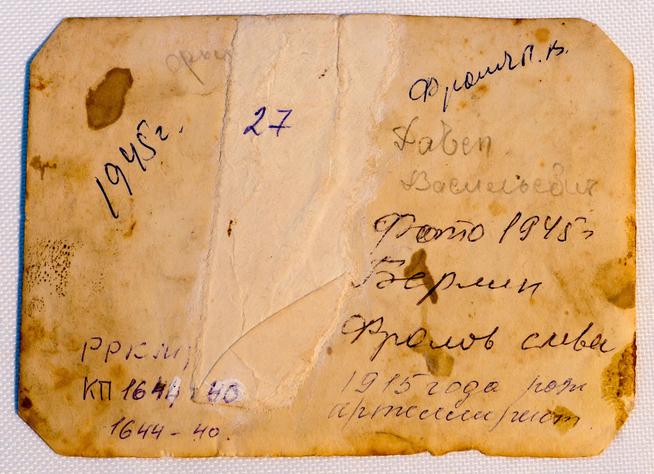 1945г.
27
Фролов П. В.
Павел
Васильевич
Фото 1945г
Берлин
Фролов слева
1915 года рож
артиллерист
КП 1644-40
1644-40.